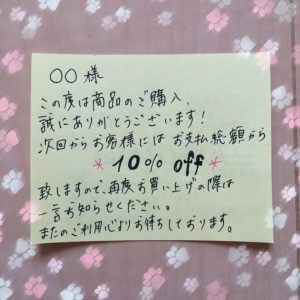 ○○様
この度は商品のご購入、
誠にありがとうございます!
次回からお客様には お支払総額から
* 10% off *
致しますので、再度お買い上げの際は
一言お知らせください。
またのご利用心よりお待ちしております。